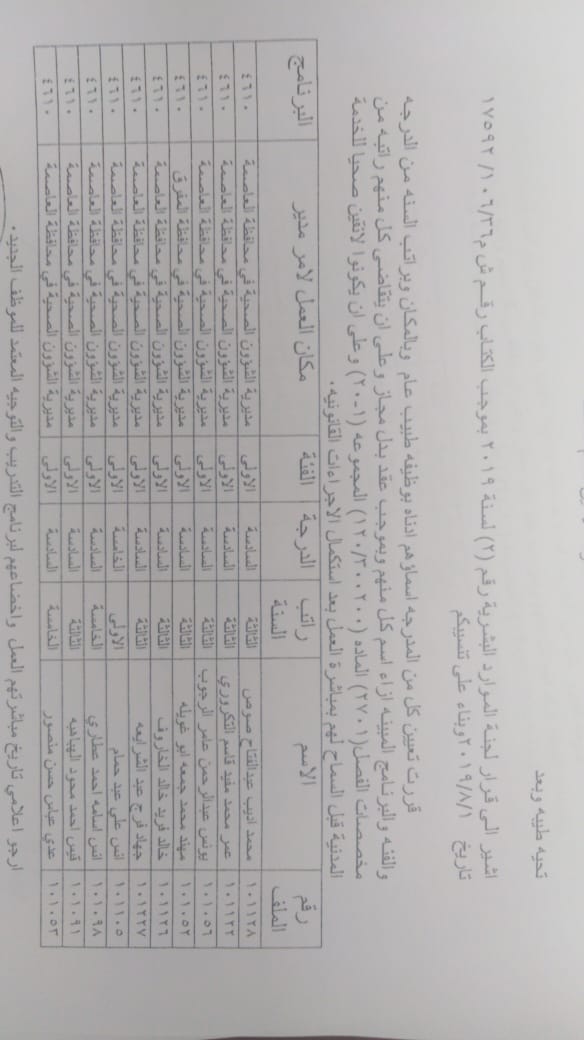 تحيه طيبه وبعد
اشير الى قرار لجنة الموارد البشرية رقم (٢) لسنة ٢٠١٩ بموجب الكتاب رقم ش م/١٠٦/٢٦/١٧٥٩٢
تاريخ ٢٠١٩/٨/١ وبناء على تنسيبكم
قررت تعيين كل من المدرجه اسماؤهم ادناه بوظيفه طبيب عام وبالمكان وبراتب السنه من الدرجه
والفئه والبرنامج المبينه ازاء اسم كل منهم وبموجب عقد بدل مجاز وعلى ان يتقاضى كل منهم راتبه من
مخصصات الفصل (٢٧٠١) الماده (١٢٠/٣٠٠٢٠٠) المجموعه (٢٠-١) وعلى ان يكونوا لائقين صحيا للخدمة
المدنية قبل السماح لهم بمباشرة العمل بعد استكمال الاجراءات القانونيه.
رقم الملف الاسم راتب السنة الدرجة الفئة مكان العمل لامر مدير البرنامج
١٠١١٢٨ محمد اديب عبدالفتاح صوص الثالثة السادسة الاولى مديرية الشؤون الصحية في محافظة العاصمة ٤٦١٠
١٠١١٢٢ عمر محمد مفيد قاسم التكروري الثالثة السادسة الاولى مديرية الشؤون الصحية في محافظة العاصمة ٤٦١٠
١٠١٠٥٦ يونس عبدالرحمن عمر الرجوب الثالثة السادسة الاولى مديرية الشؤون الصحية في محافظة العاصمة ٤٦١٠
١٠١٠٥٢ مهند محمد جمعه ابو غويله الثالثة السادسة الاولى مديرية الشؤون الصحية في محافظة المفرق ٤٦١٠
١٠١١٢٦ خالد فريد خالد الخاروف الثالثة السادسة الاولى مديرية الشؤون الصحية في محافظة العاصمة ٤٦١٠
١٠١٢٢٧ جهاد فرج عبد الشرايعه الثالثة السادسة الاولى مديرية الشؤون الصحية في محافظة العاصمة ٤٦١٠
١٠١١٠٥ انس علي عبد حمام الاولى الخامسة الاولى مديرية الشؤون الصحية في محافظة العاصمة ٤٦١٠
١٠١٠٩٨ انس اسامه احمد عطاري الخامسة السادسة الاولى مديرية الشؤون الصحية في محافظة العاصمة ٤٦١٠
١٠١٠٩١ قيس احمد محمود الهباهبه الثالثة السادسة الاولى مديرية الشؤون الصحية في محافظة العاصمة ٤٦١٠
١٠١٠٥٣ عدي عباس حسن منصور الخامسة السادسة الاولى مديرية الشؤون الصحية في محافظة العاصمة ٤٦١٠
ارجو اعلامي تاريخ مباشرتهم العمل واخضاعهم لبرنامج التدريب والتوجيه المعتمد للموظف الجديد.